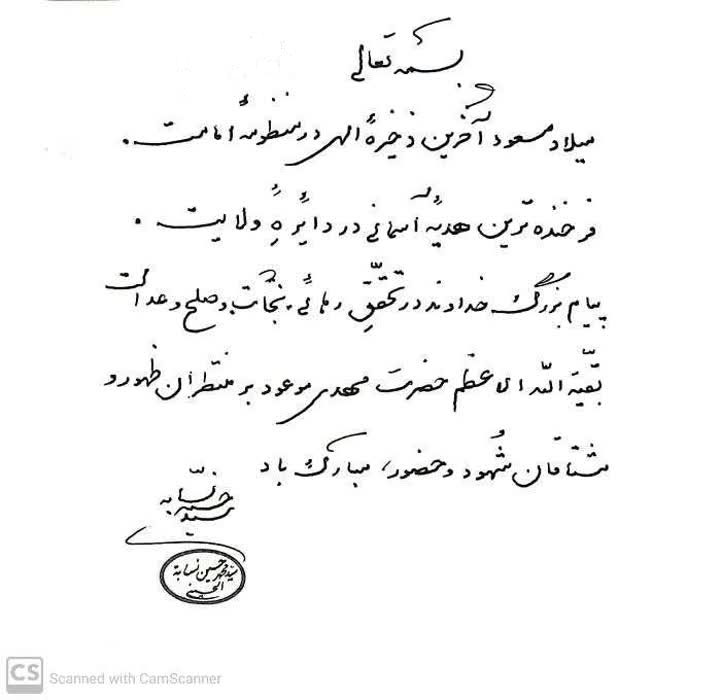 بسمه تعالی
میلاد مسعود آخرین ذخیرهٔ الهی در منظومهٔ امامت .
فرخنده ترین هدیهٔ آسمانی در دایرهٔ ولایت .
پیام بزرگ خداوند در تحقّقِ رهائی، نجات، وصلح و عدالت
بقیّة اللّه الاعظم حضرت مهدی موعود بر منتظران ظهور و
مشتاقان شُهود و حضور، مبارک باد
سید حسین نسّابه
سیّد محمد حسین نسابة
الحسینی
CS Scanned with CamScanner